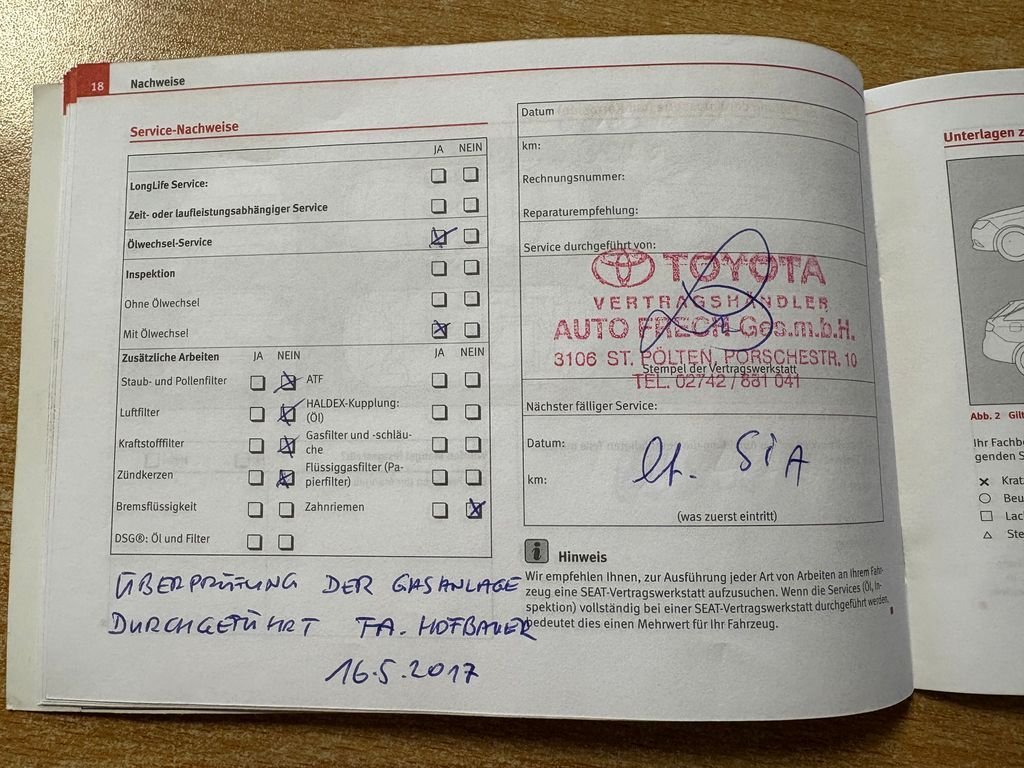 18 Nachweise
Service-Nachweise
JA NEIN
LongLife Service:
Zeit- oder laufleistungsabhängiger Service
Ölwechsel-Service
Inspektion
Ohne Ölwechsel
Mit Ölwechsel
Zusätzliche Arbeiten JA NEIN JA NEIN
Staub- und Pollenfilter ATF
Luftfilter HALDEX-Kupplung:
(Öl)
Kraftstofffilter Gasfilter und -schläu-
che
Zündkerzen Flüssiggasfilter (Pa-
pierfilter)
Bremsflüssigkeit Zahnriemen
DSG®: Öl und Filter
ÜBERPRÜFUNG DER GASANLAGE
DURCHGEFÜHRT FA. HOFBAUER
16.5.2017
Datum
km:
Rechnungsnummer:
Reparaturempfehlung:
Service durchgeführt von:
TOYOTA
VERTRAGSHÄNDLER
AUTO FRECH Ges.m.b.H.
3106 ST. PÖLTEN, PORSCHESTR. 10
Stempel der Vertragswerkstatt
TEL. 02742 / 881 041
Nächster fälliger Service:
Datum:
lt. SIA
km:
(was zuerst eintritt)
Hinweis
Wir empfehlen Ihnen, zur Ausführung jeder Art von Arbeiten an Ihrem Fahr-
zeug eine SEAT-Vertragswerkstatt aufzusuchen. Wenn die Services (Öl, In-
spektion) vollständig bei einer SEAT-Vertragswerkstatt durchgeführt werden,
bedeutet dies einen Mehrwert für Ihr Fahrzeug.
Unterlagen z
Abb. 2 Gilt
Ihr Fachb
genden S
Krat
Beu
Lac
Ste